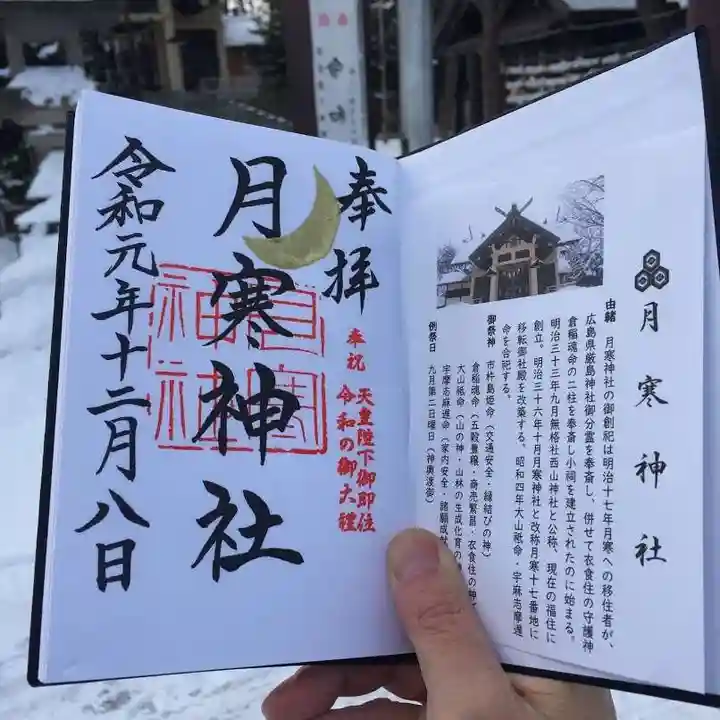 月寒神社
由緒 月寒神社の御創祀は明治十七年月寒への移住者が、
広島県厳島神社御分霊を奉斎し、併せて衣食住の守護神
倉稲魂命の二柱を奉斎し小祠を建立されたのに始まる。
明治三十三年九月無格社西山神社と公称、現在の福住に
創立。明治三十六年十月月寒神社と改称月寒十七番地に
移転御社殿を改築する。昭和四年大山祇命・宇麻志麻遅
命を合祀する。
御祭神 市杵島姫命(交通安全・縁結びの神)
倉稲魂命(五穀豊穣・商売繁昌・衣食住の神
大山祇命(山の神・山林の生成化育の
宇摩志麻遅命(家内安全・諸願成就
例祭日 九月第二日曜日(神輿渡御)
奉拝
奉祝 天皇陛下御即位
令和の御大禮
月寒神社
月寒
神社
令和元年十二月八日
令和